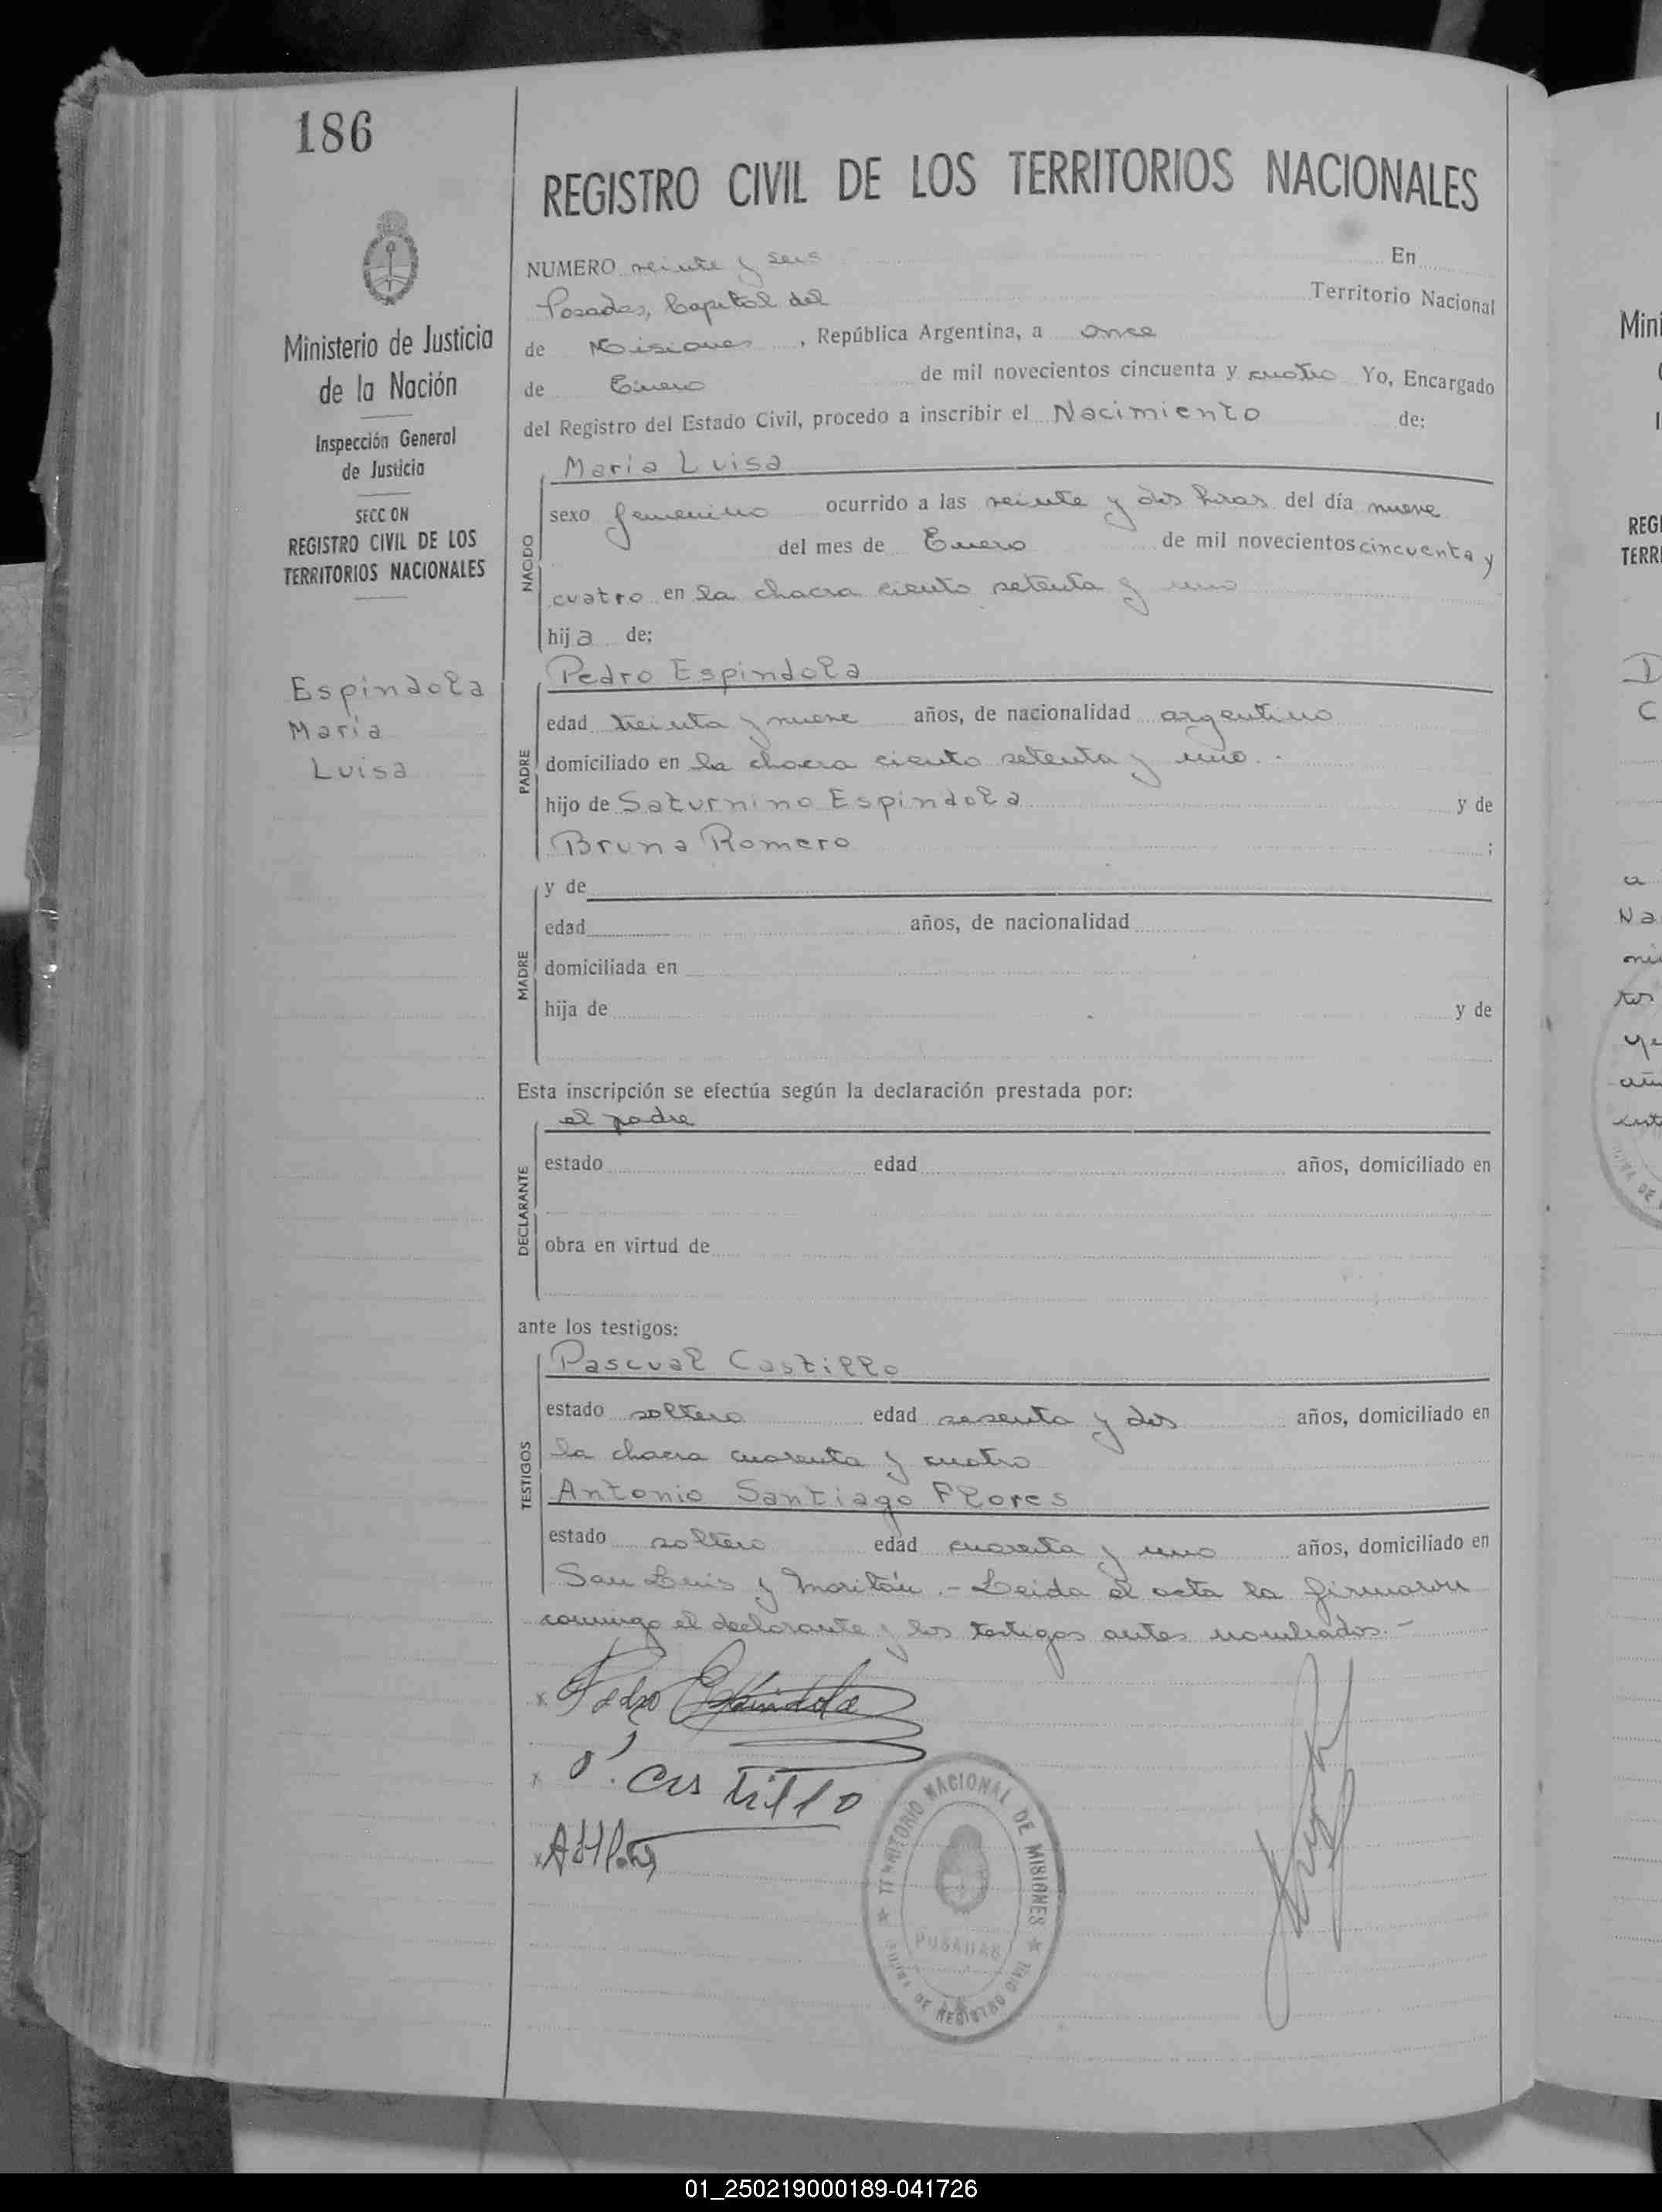 186
REGISTRO CIVIL DE LOS TERRITORIOS NACIONALES
Ministerio de Justicia
de la Nación
Inspección General
de Justicia
SECC ON
REGISTRO CIVIL DE LOS
TERRITORIOS NACIONALES
Espindola
María
Luisa
NUMERO veinte y seis En
Posadas, Capital del Territorio Nacional
de Misiones, República Argentina, a once
de Enero de mil novecientos cincuenta y cuatro Yo, Encargado
del Registro del Estado Civil, procedo a inscribir el Nacimiento de:
NACIDO
María Luisa
sexo femenino ocurrido a las veinte y dos horas del día nueve
del mes de Enero de mil novecientos cincuenta y
cuatro en la chacra ciento setenta y uno
hija de:
PADRE
Pedro Espindola
edad treinta y nueve años, de nacionalidad argentino
domiciliado en la chacra ciento setenta y uno.
hijo de Saturnino Espindola y de
Bruna Romero ;
MADRE
y de
edad años, de nacionalidad
domiciliada en
hija de y de
Esta inscripción se efectúa según la declaración prestada por:
DECLARANTE
el padre
estado edad años, domiciliado en
obra en virtud de
ante los testigos:
TESTIGOS
Pascual Castillo
estado soltero edad sesenta y dos años, domiciliado en
la chacra cuarenta y cuatro
Antonio Santiago Flores
estado soltero edad cuarenta y uno años, domiciliado en
San Luis y Moritán.- Leida el acta la firmaron
conmigo el declarante y los testigos antes nombrados.-
x Pedro Espindola
x P. Castillo
x
TERRITORIO NACIONAL DE MISIONES
POSADAS
DE REGISTRO CIVIL
Mini
REGI
TERRI
01_250219000189-041726